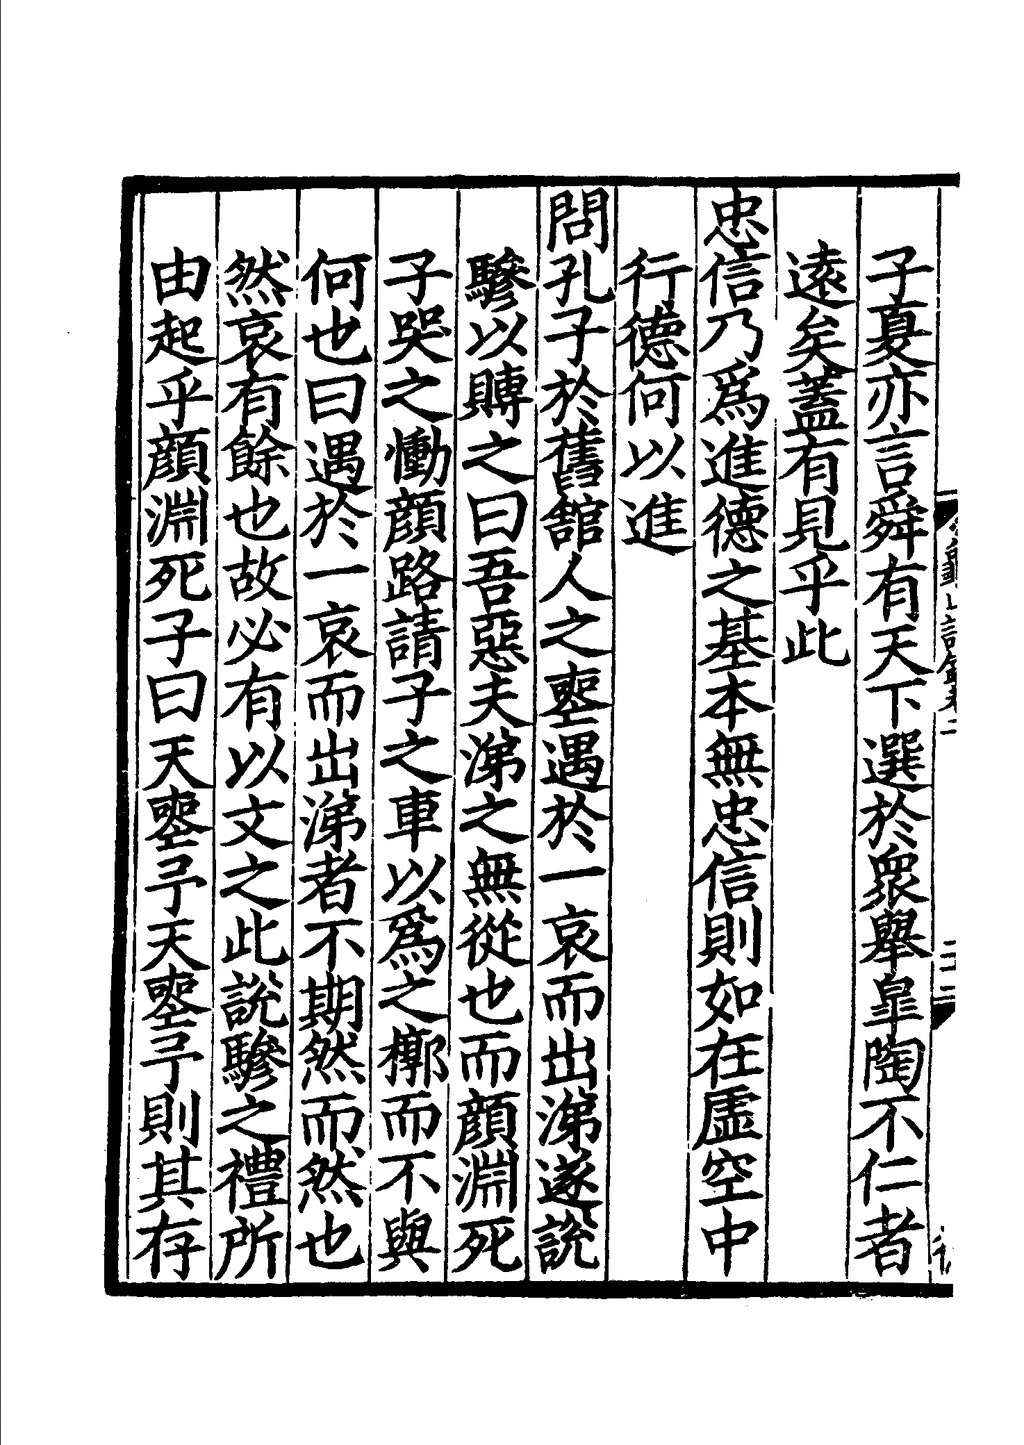 子夏亦言舜有天下選於衆舉臯陶不仁者
遠矣蓋有見乎此
忠信乃爲進德之基本無忠信則如在虛空中
行德何以進
問孔子於舊舘人之䘮遇於一哀而出涕遂說
驂以賻之曰吾惡夫涕之無從也而顏淵死
子哭之慟顏路請子之車以爲之槨而不與
何也曰遇於一哀而出涕者不期然而然也
然哀有餘也故必有以文之此說驂之禮所
由起乎顏淵死子曰天䘮予天䘮予則其存